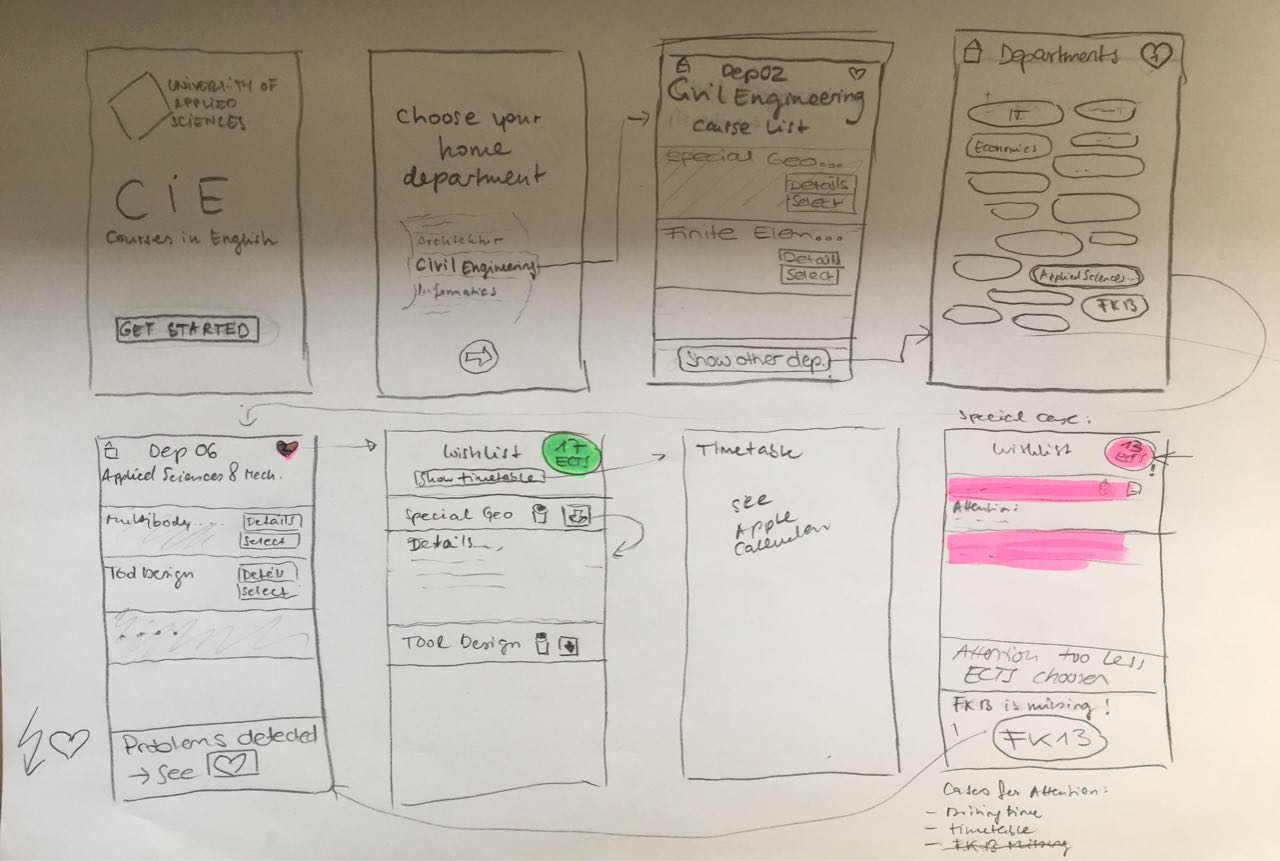 UNIVERSITY OF
APPLIED
SCIENCES
CiE
Courses in English
GET STARTED
Choose your
home
department
Architektur
Civil Engineering
Informatics
Dep02
Civil Engineering
Course List
Special Geo...
Details
Select
Finite Elem...
Details
Select
Show other dep.
Departments
1
IT
Economics
Applied Sciences...
FK13
Dep 06
Applied Sciences & Mech.
Multibody.....
Details
Select
Tool Design
Details
Select
....
Problems detected
→ See
Wishlist
17
ECTS
Show timetable
Special Geo
Details
Tool Design
Timetable
see
Apple
Calendar
Special Case:
Wishlist
13
ECTS
!
Attention:
Attention too less
ECTS choosen
FK13 is missing!
FK13
Cases for Attention:
- Driving time
- timetable
- FK13 Missing